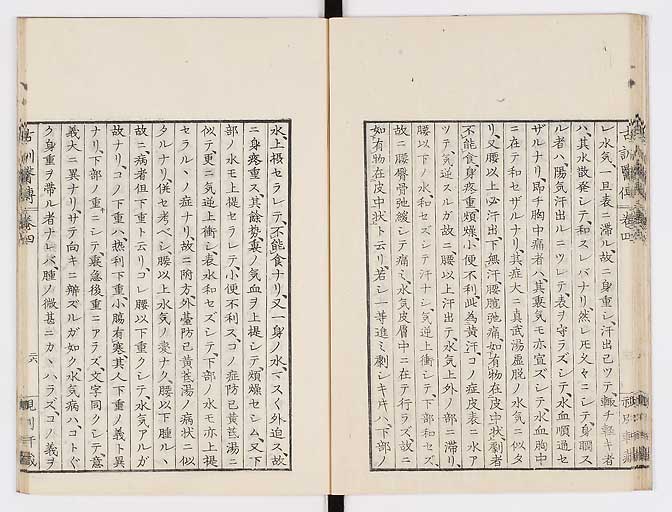 レ水気一旦表ニ滞ル故ニ身重シ、汗出己ツテ輙チ軽キ者
ハ、其水散発シテ、和スレバナリ、然レ𪜈久々ニシテ、身瞤ス
ル者ハ、陽気汗出ルニツレテ、表ヲ守ラズシテ、水血順通セ
ザルナリ、即チ胸中痛者ハ、其裏気モ亦宜ズシテ、水血胸中
ニ在テ和セザルナリ、其症大ニ真武湯虚脱ノ水気ニ似タ
リ、又腰以上必汗出下無汗腰髖弛痛、如有物在皮中状、劇者
不能食身疼重煩燥、小便不利、此為黄汗、コノ症皮表ニ水ア
ツテ、気逆スルガ故ニ、腰以上汗出テ、水気上外ノ部ニ滞リ、
腰以下ノ水和セズシテ汗ナシ、気逆上衝シテ、下部和セズ、
故ニ腰臀骨弛緩シテ痛ミ、水気皮層中ニ在テ行ラズ、故ニ
如有物在皮中状ト云リ、若シ一等進ミ劇シキ片ハ、下部ノ
水、上搐セラレテ、不能食ナリ、又一身ノ水、下スク外迫ス、故
ニ身疼重ス、其餘勢裏ノ気血ヲ上提シテ、煩燥セシム、又下
部ノ水モ上提セラレテ、小便不利ス、コノ症防己黄芪湯ニ
似テ、更ニ気逆上衝シ、表水和セズシテ、下部ノ水モ亦上提
セラルヽノ症ナリ、故ニ附方外臺防己黄芪湯ノ病状ニ似
タルナリ、併セ考ベシ、腰以上水気ノ変ナク、腰以下腫ルヽ
故ニ、病者但下重ト云リ、コレ腰以下重クシテ、水気アルガ
故ナリ、コノ下重ハ、熱利下重、小腸有寒、其人下重ノ義ト異
ナリ、下部ノ重キニシテ、裏急後重ニアラズ、文字同クシテ、意
義大ニ異ナリ、サテ向キニ辨ズルガ如ク、水気病ハ、コトゴト
ク身重ヲ帯ル者ナレバ、腫ノ微甚ニカヽハラズ、コノ義ヲ
古訓醫傳
巻四
二六